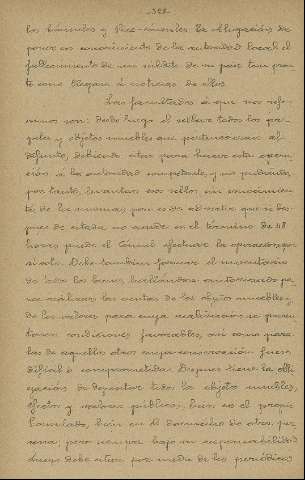 -328-
los Cónsules y Vice-cónsules la obligación de
poner en conocimiento de la autoridad local el
fallecimiento de un súbdito de su pais tan pron
to como llegara á noticias de ellos.
Las facultades á que nos refe-
rimos son: desde luego el sellar todos los pa-
peles y objetos muebles que pertenezcan al
difunto, debiendo citar para hacer esta opera-
ción á la autoridad competente, y no pudiendo,
por tanto, levantar esos sellos sin conocimien-
to de la misma; pero es de advertir que si des-
pues de citada no acude en el término de 48
horas puede el Cónsul efectuar la operación por
si solo. Debe tambien formar el inventario
de todos los bienes, hallándose autorizado pa-
ra realizar las ventas de los objetos muebles y
de los valores para cuya realización se presen
tasen condiciones favorables, así como para
las de aquellos otros cuya conservación fuera
dificil ó comprometida. Despues tiene la obli
gación de depositar todos los objetos muebles,
efectos y valores públicos, bien en el propio
Consulado, bien en el domicilio de otra per
sona; pero siempre bajo su responsabilidad
luego debe citar por medio de los periódicos